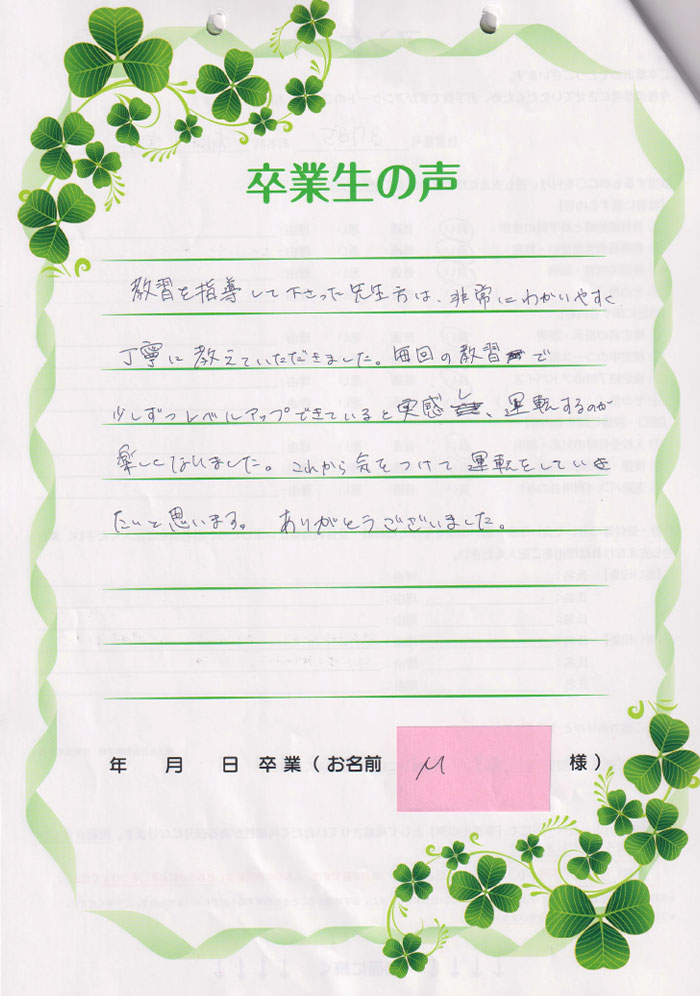 卒業生の声
教習を指導して下さった先生方は、非常にわかりやすく
丁寧に教えていただきました。毎回の教習で
少しずつレベルアップできていると実感し、運転するのが
楽しくなりました。これから気をつけて運転をしていき
たいと思います。 ありがとうございました。
年 月 日 卒業(お名前 M 様)